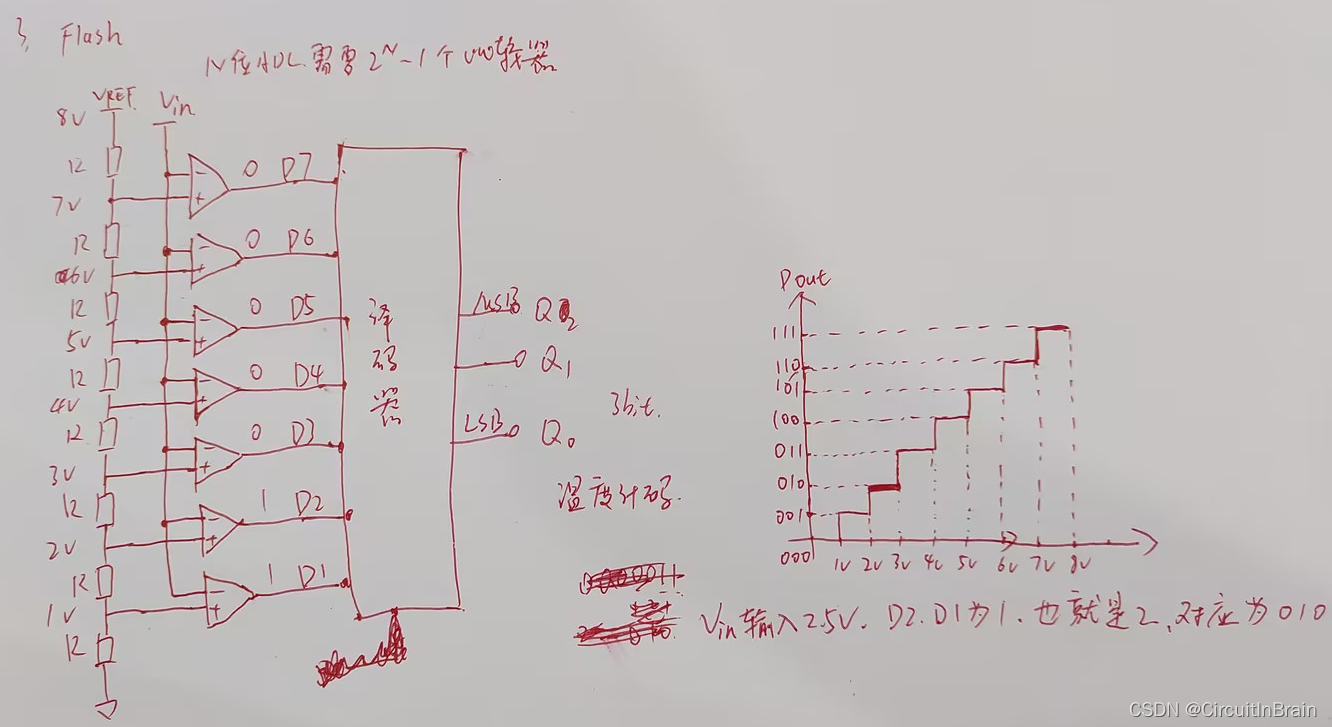 3, Flash
N位ADC.需要2^N-1个比较器
VREF. Vin
8V
R
0 D7
7V
R
0 D6
6V
R
0 D5
5V
R
0 D4
4V
R
0 D3
3V
R
1 D2
2V
R
1 D1
1V
R
译码器
MSB Q2
Q1
LSB Q0
3bit.
温度计码.
Dout
111
110
101
100
011
010
001
000
1V 2V 3V 4V 5V 6V 7V 8V
Vin输入2.5V. D2.D1为1.也就是2,对应为010
CSDN @CircuitInBrain